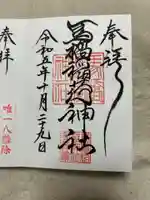 奉拝
馬橋稲荷神社
令和五年十月二十九日
奉拝
唯一八難除